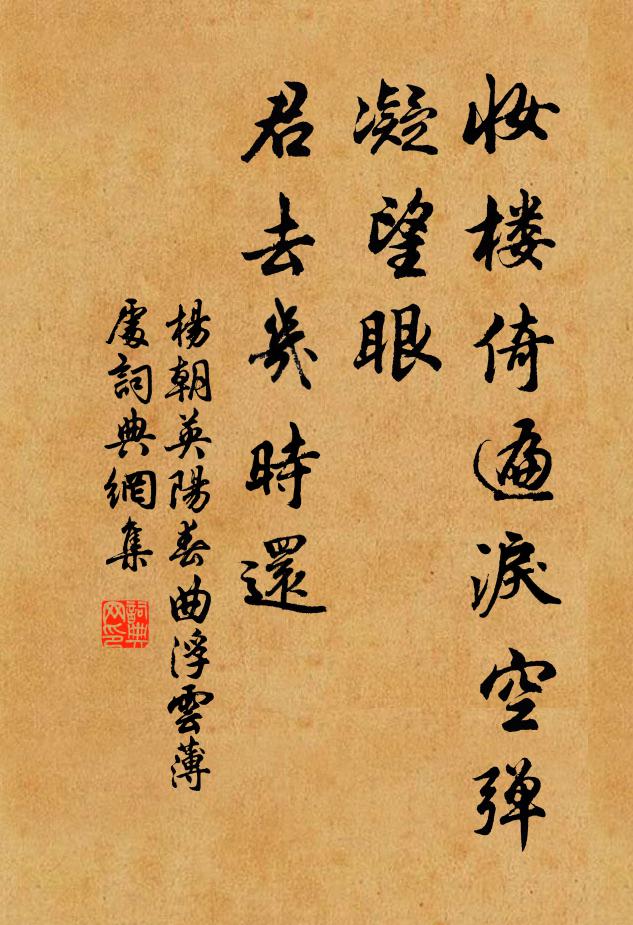 妆楼倚遍淚空弹
凝望眼
君去幾時還
楊朝英陽春曲浮雲薄
處詞典網集
詞典
网印